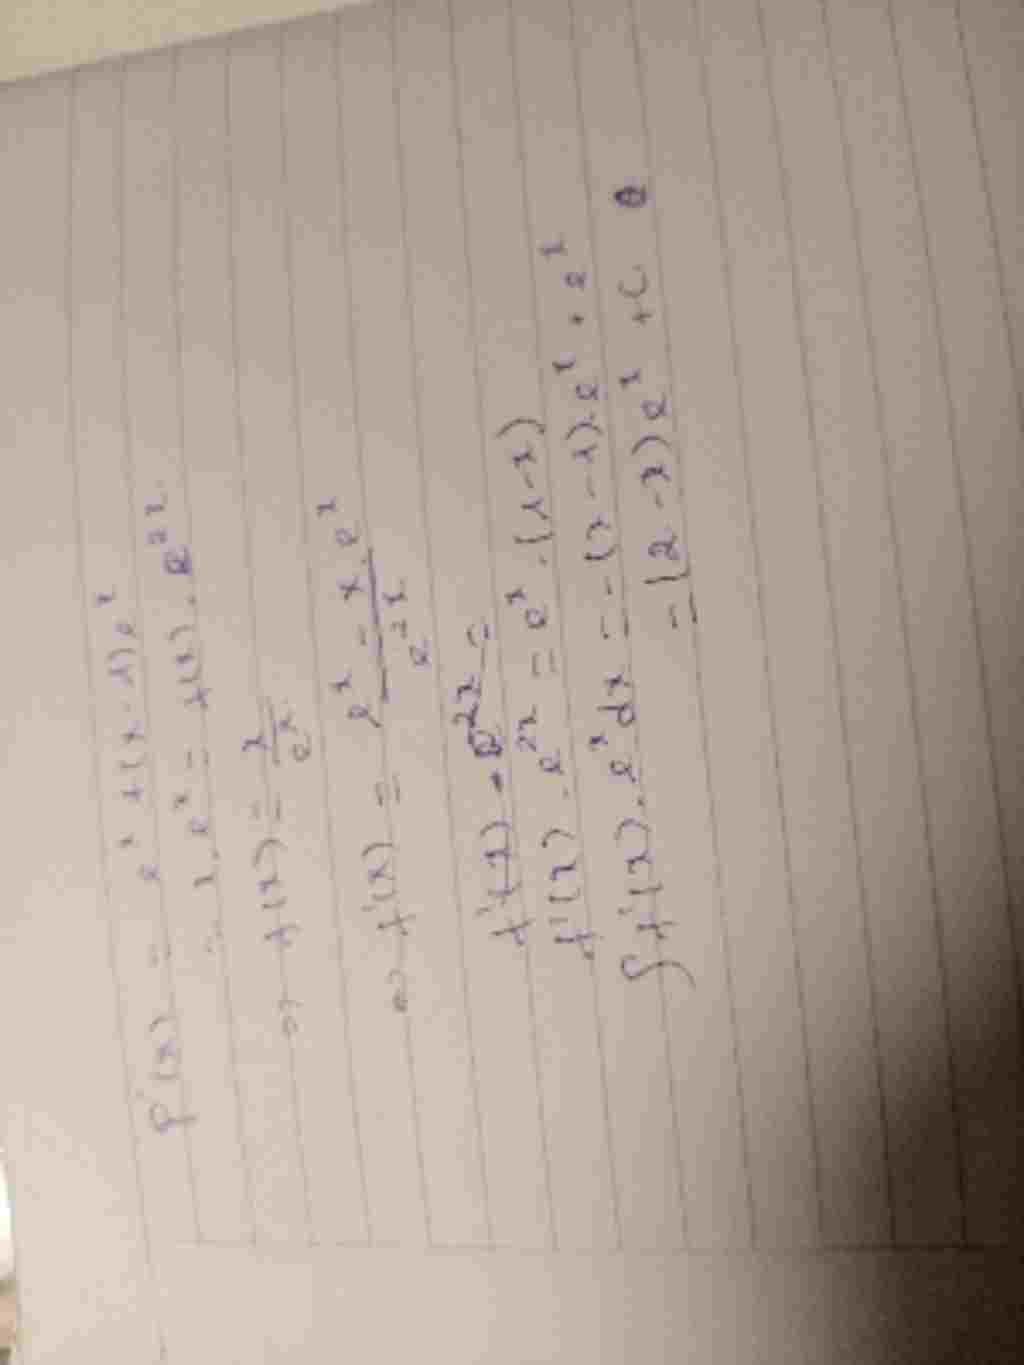 F'(x) = e^x + (x - 1) e^x
= x . e^x = f(x) . e^{2x}
=> f(x) = \frac{x}{e^x}
=> f'(x) = \frac{e^x - x . e^x}{e^{2x}}
f'(x) . e^{2x} =
f'(x) . e^{2x} = e^x . (1 - x)
∫ f'(x) . e^x dx = - (x - 1) . e^x + e^x
= (2 - x) e^x + C